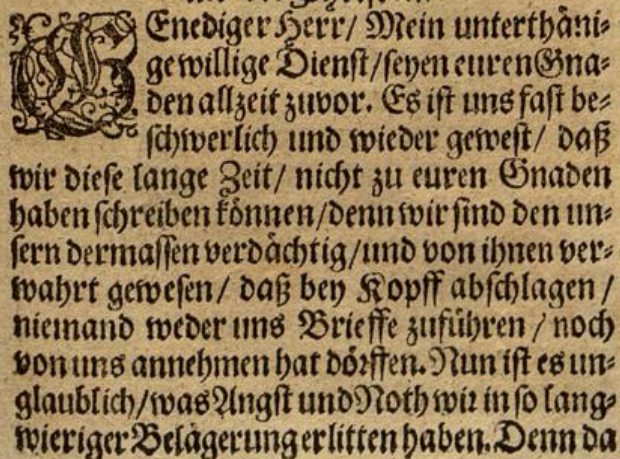 GEnediger Herr/ Mein unterthäni⸗
ge willige Dienst/ seyen euren Gna⸗
den allzeit zuvor. Es ist uns fast be⸗
schwerlich und wieder gewest/ daß
wir diese lange Zeit/ nicht zu euren Gnaden
haben schreiben können/ denn wir sind den un⸗
sern dermassen verdächtig/ und von ihnen ver⸗
wahrt gewesen/ daß bey Kopff abschlagen /
niemand weder uns Brieffe zuführen / noch
von uns annehmen hat dörffen. Nun ist es un⸗
glaublich/ was Angst und Noth wir in so lang⸗
wieriger Belägerung erlitten haben. Denn da